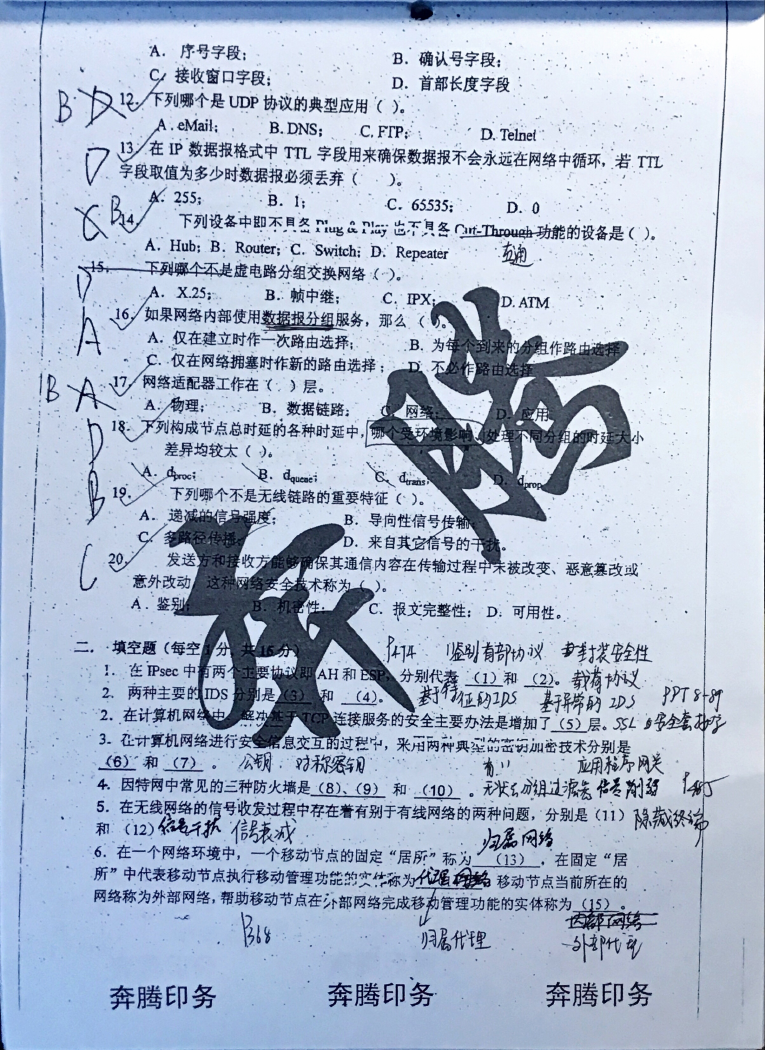 A. 序号字段； B. 确认号字段；
C. 接收窗口字段； D. 首部长度字段
B D 12. 下列哪个是 UDP 协议的典型应用（ ）。
A. eMail； B. DNS； C. FTP； D. Telnet
D 13. 在 IP 数据报格式中 TTL 字段用来确保数据报不会永远在网络中循环，若 TTL
字段取值为多少时数据报必须丢弃（ ）。
A. 255； B. 1； C. 65535； D. 0
B 14. 下列设备中即不具备 Plug & Play 也不具备 Cut-Through 功能的设备是（ ）。
A. Hub；B. Router；C. Switch；D. Repeater 直通
D 15. 下列哪个不是虚电路分组交换网络（ ）。
A. X.25； B. 帧中继； C. IPX； D. ATM
A 16. 如果网络内部使用数据报分组服务，那么（ ）。
A. 仅在建立时作一次路由选择； B. 为每个到来的分组作路由选择
C. 仅在网络拥塞时作新的路由选择； D. 不必作路由选择
B A 17. 网络适配器工作在（ ）层。
A. 物理； B. 数据链路； C. 网络； D. 应用
D 18. 下列构成节点总时延的各种时延中，哪个受环境影响，处理不同分组的时延大小
差异均较太（ ）。
A. dproc； B. dqueue； C. dtrans， D. dprop
B 19. 下列哪个不是无线链路的重要特征（ ）。
A. 递减的信号强度； B. 导向性信号传输
C. 多路径传播； D. 来自其它信号的干扰。
C 20. 发送方和接收方能够确保其通信内容在传输过程中未被改变、恶意篡改或
意外改动，这种网络安全技术称为（ ）。
A. 鉴别； B. 机密性； C. 报文完整性； D. 可用性。
二． 填空题（每空1分，共16分） P474 鉴别首部协议 封装安全性
1. 在 IPsec 中有两个主要协议即 AH 和 ESP，分别代表 （1）和 （2）。 载荷协议
2. 两种主要的 IDS 分别是（3） 和 （4）。 基于特征的IDS 基于异常的IDS PPT 8-89
2. 在计算机网络中，解决基于 TCP 连接服务的安全主要办法是增加了（5）层。 SSL 安全套接字
3. 在计算机网络进行安全信息交互的过程中，采用两种典型的密钥加密技术分别是
（6） 和 （7） 。 公钥 对称密钥 应用程序网关
4. 因特网中常见的三种防火墙是（8）、（9） 和 （10） 。 无状态分组过滤器
5. 在无线网络的信号收发过程中存在着有别于有线网络的两种问题，分别是（11） 隐藏终端
和 （12） 信号衰减
归属网络
6. 在一个网络环境中，一个移动节点的固定“居所”称为 （13） ，在固定“居
所”中代表移动节点执行移动管理功能的实体称为 移动节点当前所在的
网络称为外部网络，帮助移动节点在外部网络完成移动管理功能的实体称为 （15） 。
归属代理 外部代理
奔腾
奔腾印务 奔腾印务 奔腾印务